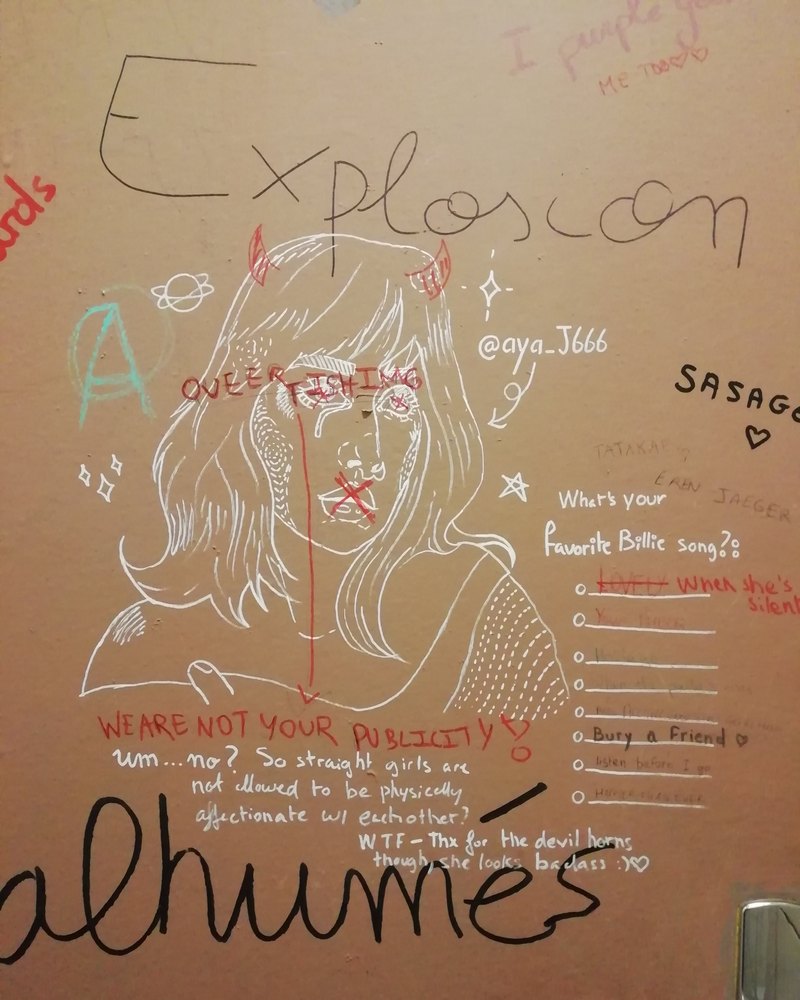 I purple you
ME TOO♡♡
Explosion
ards
A
@aya_J666
QUEER FISHING
SASAGE
♡
TATAKAE
EREN JAEGER
What's your
favorite Billie song?
LOVELY When she's
silent
Bury a Friend ♡
listen before I go
WE ARE NOT YOUR PUBLICITY!
um...no? So straight girls are
not allowed to be physically
affectionate w/ eachother?
WTF - Thx for the devil horns
though, she looks badass :)♡
alhumés